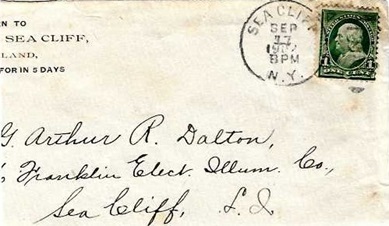 N TO
SEA CLIFF,
LAND,
FOR IN 5 DAYS
SEA CLIFF
SEP
8PM
N.Y.
1 1
ONE CENT
G. Arthur R. Dalton,
Franklin Elect. Illum. Co.,
Sea Cliff, L. I.